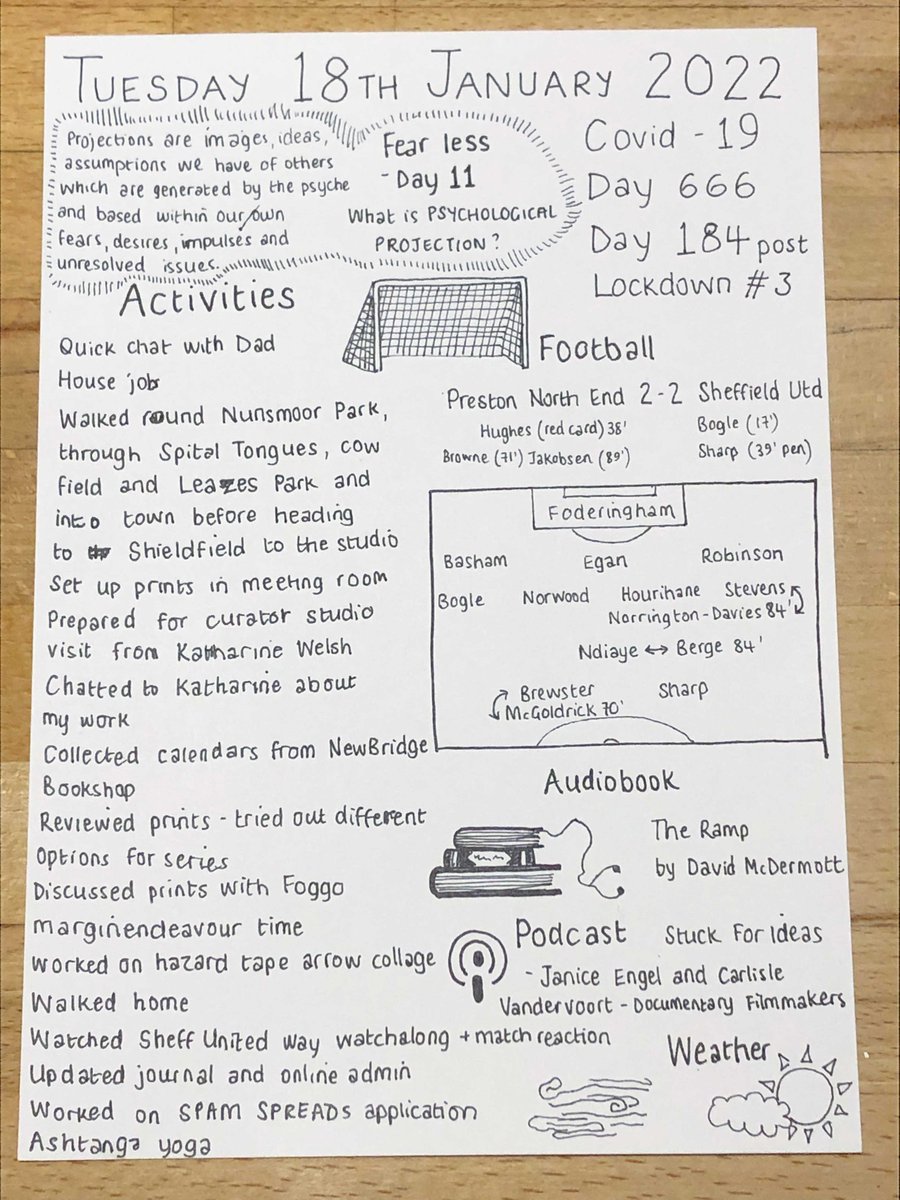 TUESDAY 18TH JANUARY 2022
Projections are images, ideas,
assumptions we have of others
which are generated by the psyche
and based within our own
fears, desires, impulses and
unresolved issues.
Fear less
- Day 11
What is PSYCHOLOGICAL
PROJECTION?
Covid - 19
Day 666
Day 184 post
Lockdown #3
Activities
Quick chat with Dad
House job
Walked round Nunsmoor Park,
through Spital Tongues, cow
field and Leazes Park and
into town before heading
to Shieldfield to the studio
Set up prints in meeting room
Prepared for curator studio
visit from Katharine Welsh
Chatted to Katharine about
my work
Collected calendars from NewBridge
Bookshop
Reviewed prints - tried out different
options for series
Discussed prints with Foggo
marginendeavour time
Worked on hazard tape arrow collage
Walked home
Watched Sheff United Way watchalong + match reaction
Updated journal and online admin
Worked on SPAM SPREADS application
Ashtanga yoga
Football
Preston North End 2-2 Sheffield Utd
Hughes (red card) 38' Bogle (17')
Browne (71') Jakobsen (89') Sharp (39' pen)
Foderingham
Basham Egan Robinson
Bogle Norwood Hourihane Stevens
Norrington-Davies 84'
Ndiaye ↔ Berge 84'
Brewster Sharp
McGoldrick 70'
Audiobook
The Ramp
by David McDermott
Podcast Stuck For Ideas
- Janice Engel and Carlisle
Vandervoort - Documentary Filmmakers
Weather